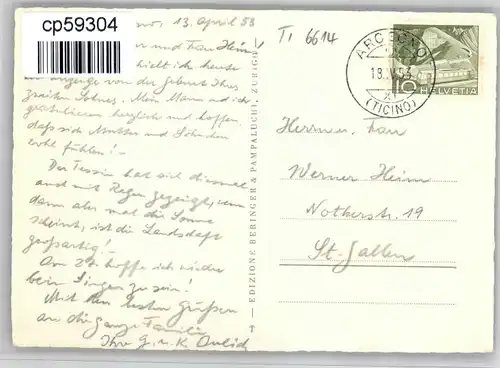 cp59304
13. April 53
TI 6614
und Frau Heim!
hielt ich heute
Anzeige von der Geburt Ihres
zweiten Sohnes. Mein Mann und ich
gratulieren herzlich und hoffen,
dass sich Mutter und Söhnchen
wohl fühlen! -
Der Tessin hat sich diesmal
auch mit Regen gezeigt, wenn
dann aber mal die Sonne
scheint, ist die Landschaft
grossartig!
Am 27. hoffe ich wieder
beim Singen zu sein!
Mit den besten Grüssen
an die ganze Familie
Ihre G. u. K.
EDIZIONE BERINGER & PAMPALUCHI, ZURIGO
ARCEGNO
13.IV.53
(TICINO)
10 HELVETIA
Herrn u. Frau
Werner Heim
Notkerstr. 19
St. Gallen